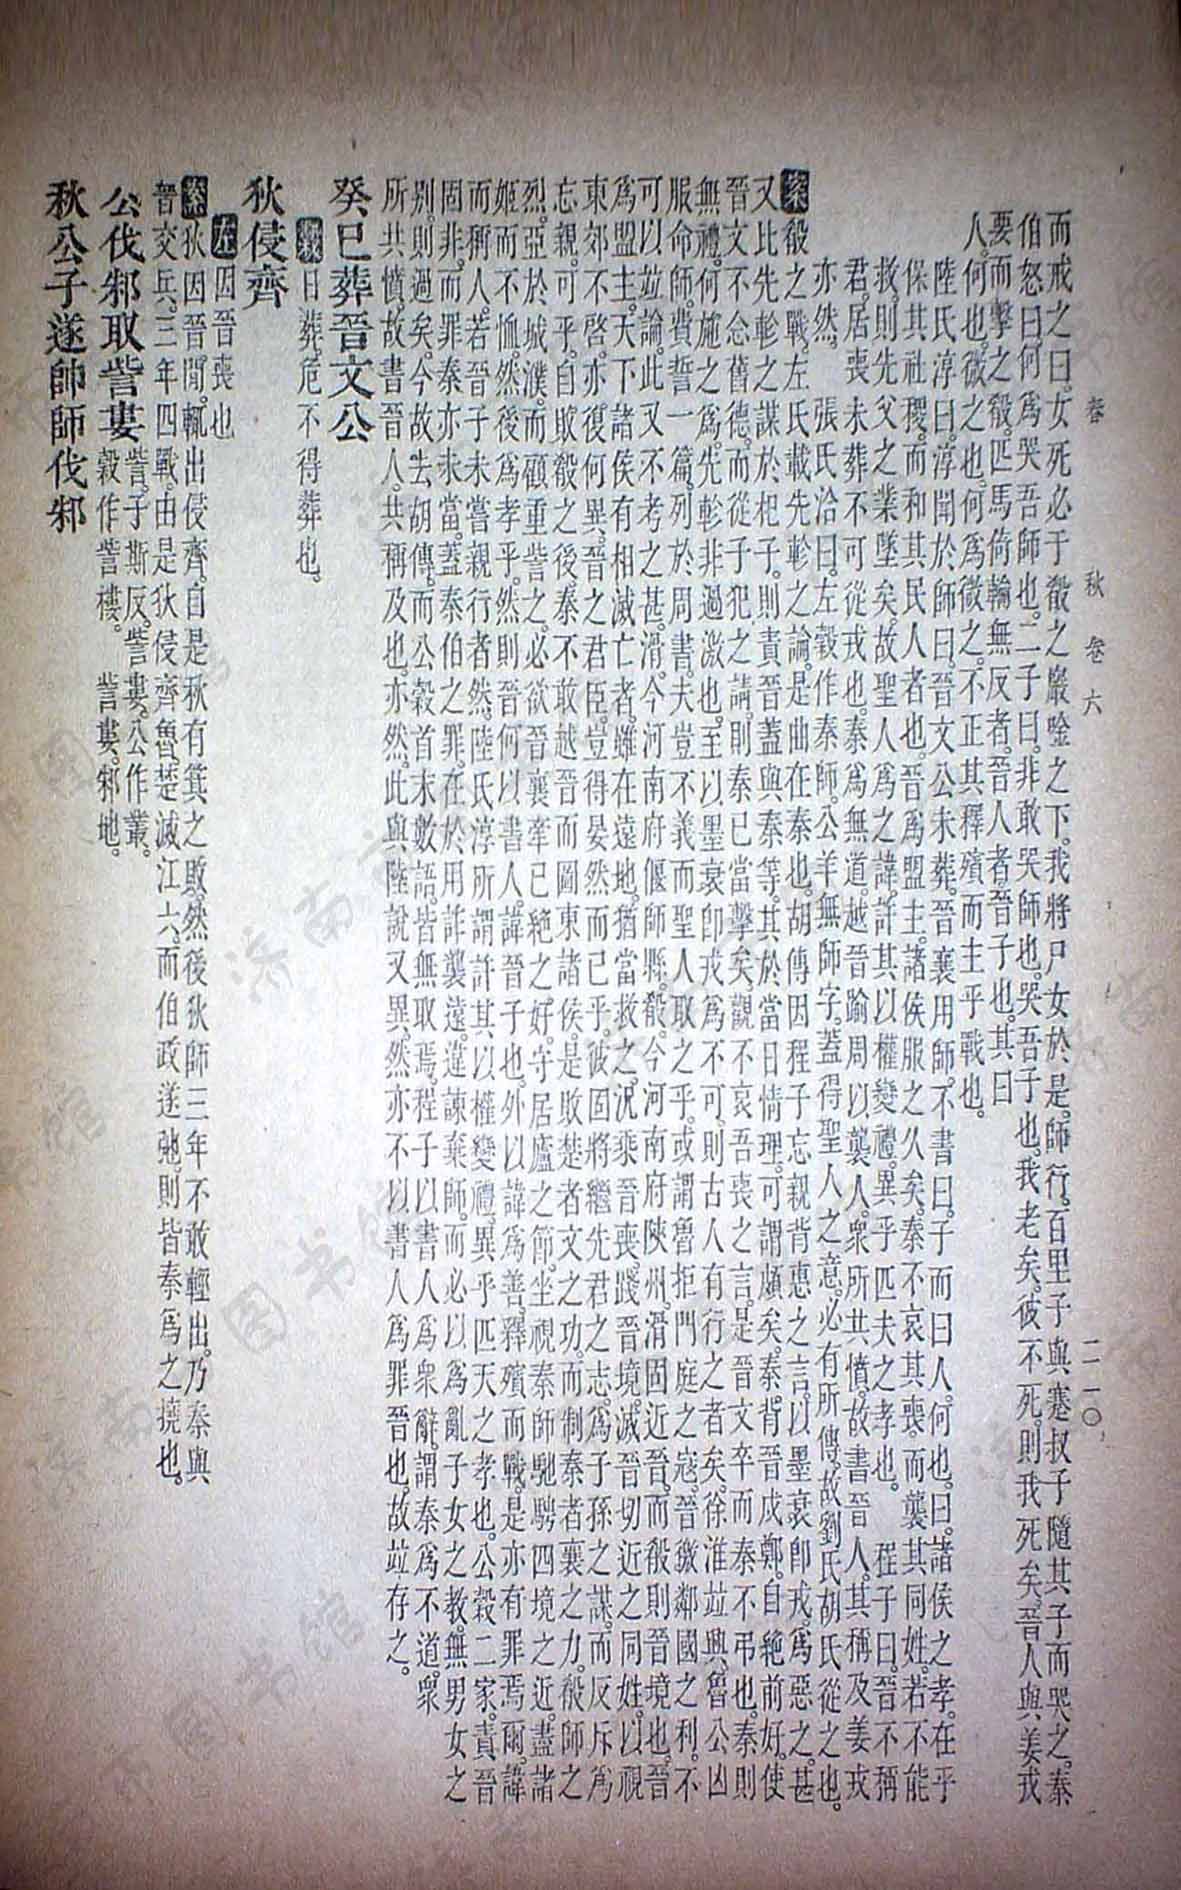 春　秋　卷六　二一〇
而戒之曰。女死必于殽之巖唫之下。我將尸女於是。師行。百里子與蹇叔子隨其子而哭之。秦
伯怒曰。何爲哭吾師也。二子曰。非敢哭師也。哭吾子也。我老矣。彼不死。則我死矣。晉人與姜戎
要而擊之殽。匹馬倚輪無反者。晉人者晉子也。其曰
人。何也。微之也。何爲微之。不正其釋殯而主乎戰也。
陸氏淳曰。淳聞於師曰。晉文公未葬。晉襄用師。不書曰。子而曰人。何也。曰。諸侯之孝。在乎
保其社稷。而和其民人者也。晉爲盟主。諸侯服之久矣。秦不哀其喪。而襲其同姓。若不能
救。則先父之業墜矣。故聖人爲之諱。許其以權變禮。異乎匹夫之孝也。　程子曰。晉不稱
君。居喪未葬。不可從戎也。秦爲無道。越晉踰周以襲人。衆所共憤。故書晉人。其稱及姜戎
亦然。　張氏洽曰。左穀作秦師。公羊無師字。蓋得聖人之意。必有所傳。故劉氏胡氏從之也。
案殽之戰。左氏載先軫之論。是曲在秦也。胡傳因程子忘親背惠之言。以墨衰卽戎。爲惡之。甚
又比先軫之謀於杞子。則責晉蓋與秦等。其於當日情理。可謂頗矣。秦背晉戍鄭。自絶前好。使
晉文不念舊德。而從子犯之請。則秦已當擊矣。觀不哀吾喪之言。是晉文卒而秦不弔也。秦則
無禮。何施之爲。先軫非過激也。至以墨衰卽戎爲不可。則古人有行之者矣。徐淮竝興。魯公凶
服命師。費誓一篇。列於周書。夫豈不義而聖人取之乎。或謂魯拒門庭之寇。晉徼鄰國之利。不
可以竝論。此又不考之甚。滑。今河南府偃師縣。殽。今河南府陝州。滑固近晉。而殽則晉境也。晉
爲盟主。天下諸侯有相滅亡者。雖在遠地。猶當救之。況乘晉喪。踐晉境。滅晉切近之同姓。以視
東郊不啓。亦復何異。晉之君臣。豈得晏然而已乎。彼固將繼先君之志。爲子孫之謀。而反斥爲
忘親。可乎。自敗殽之後。秦不敢越晉而圖東諸侯。是敗楚者文之功。而制秦者襄之力。殽師之
烈。亞於城濮。而顧重訾之。必欲晉襄牽已絶之好。守居廬之節。坐視秦師馳騁四境之近。盡諸
姬而不恤。然後爲孝乎。然則晉何以書人。諱晉子也。外以諱爲善。釋殯而戰。是亦有罪焉爾。諱
而稱人。若晉子未嘗親行者然。陸氏淳所謂許其以權變禮。異乎匹夫之孝也。公穀二家。責晉
固非。而罪秦亦未當。蓋秦伯之罪。在於用詐襲遠。違諫棄師。而必以爲亂子女之教。無男女之
别。則過矣。今故去胡傳。而公穀首末數語。皆無取焉。程子以書人爲衆辭。謂秦爲不道。衆
所共憤。故書晉人。共稱及也。亦然。此與陸說又異。然亦不以書人爲罪晉也。故竝存之。
癸巳葬晉文公
穀日葬。危不得葬也。
狄侵齊
左因晉喪也
案狄因晉閒。輒出侵齊。自是秋有箕之敗。然後狄師三年不敢輕出。乃秦與
晉交兵。三年四戰。由是狄侵齊魯。楚滅江六。而伯政遂弛。則皆秦爲之撓也。
公伐邾取訾婁　訾。子斯反。訾婁。公作叢。
穀作訾樓。　訾婁。邾地。
秋公子遂帥師伐邾